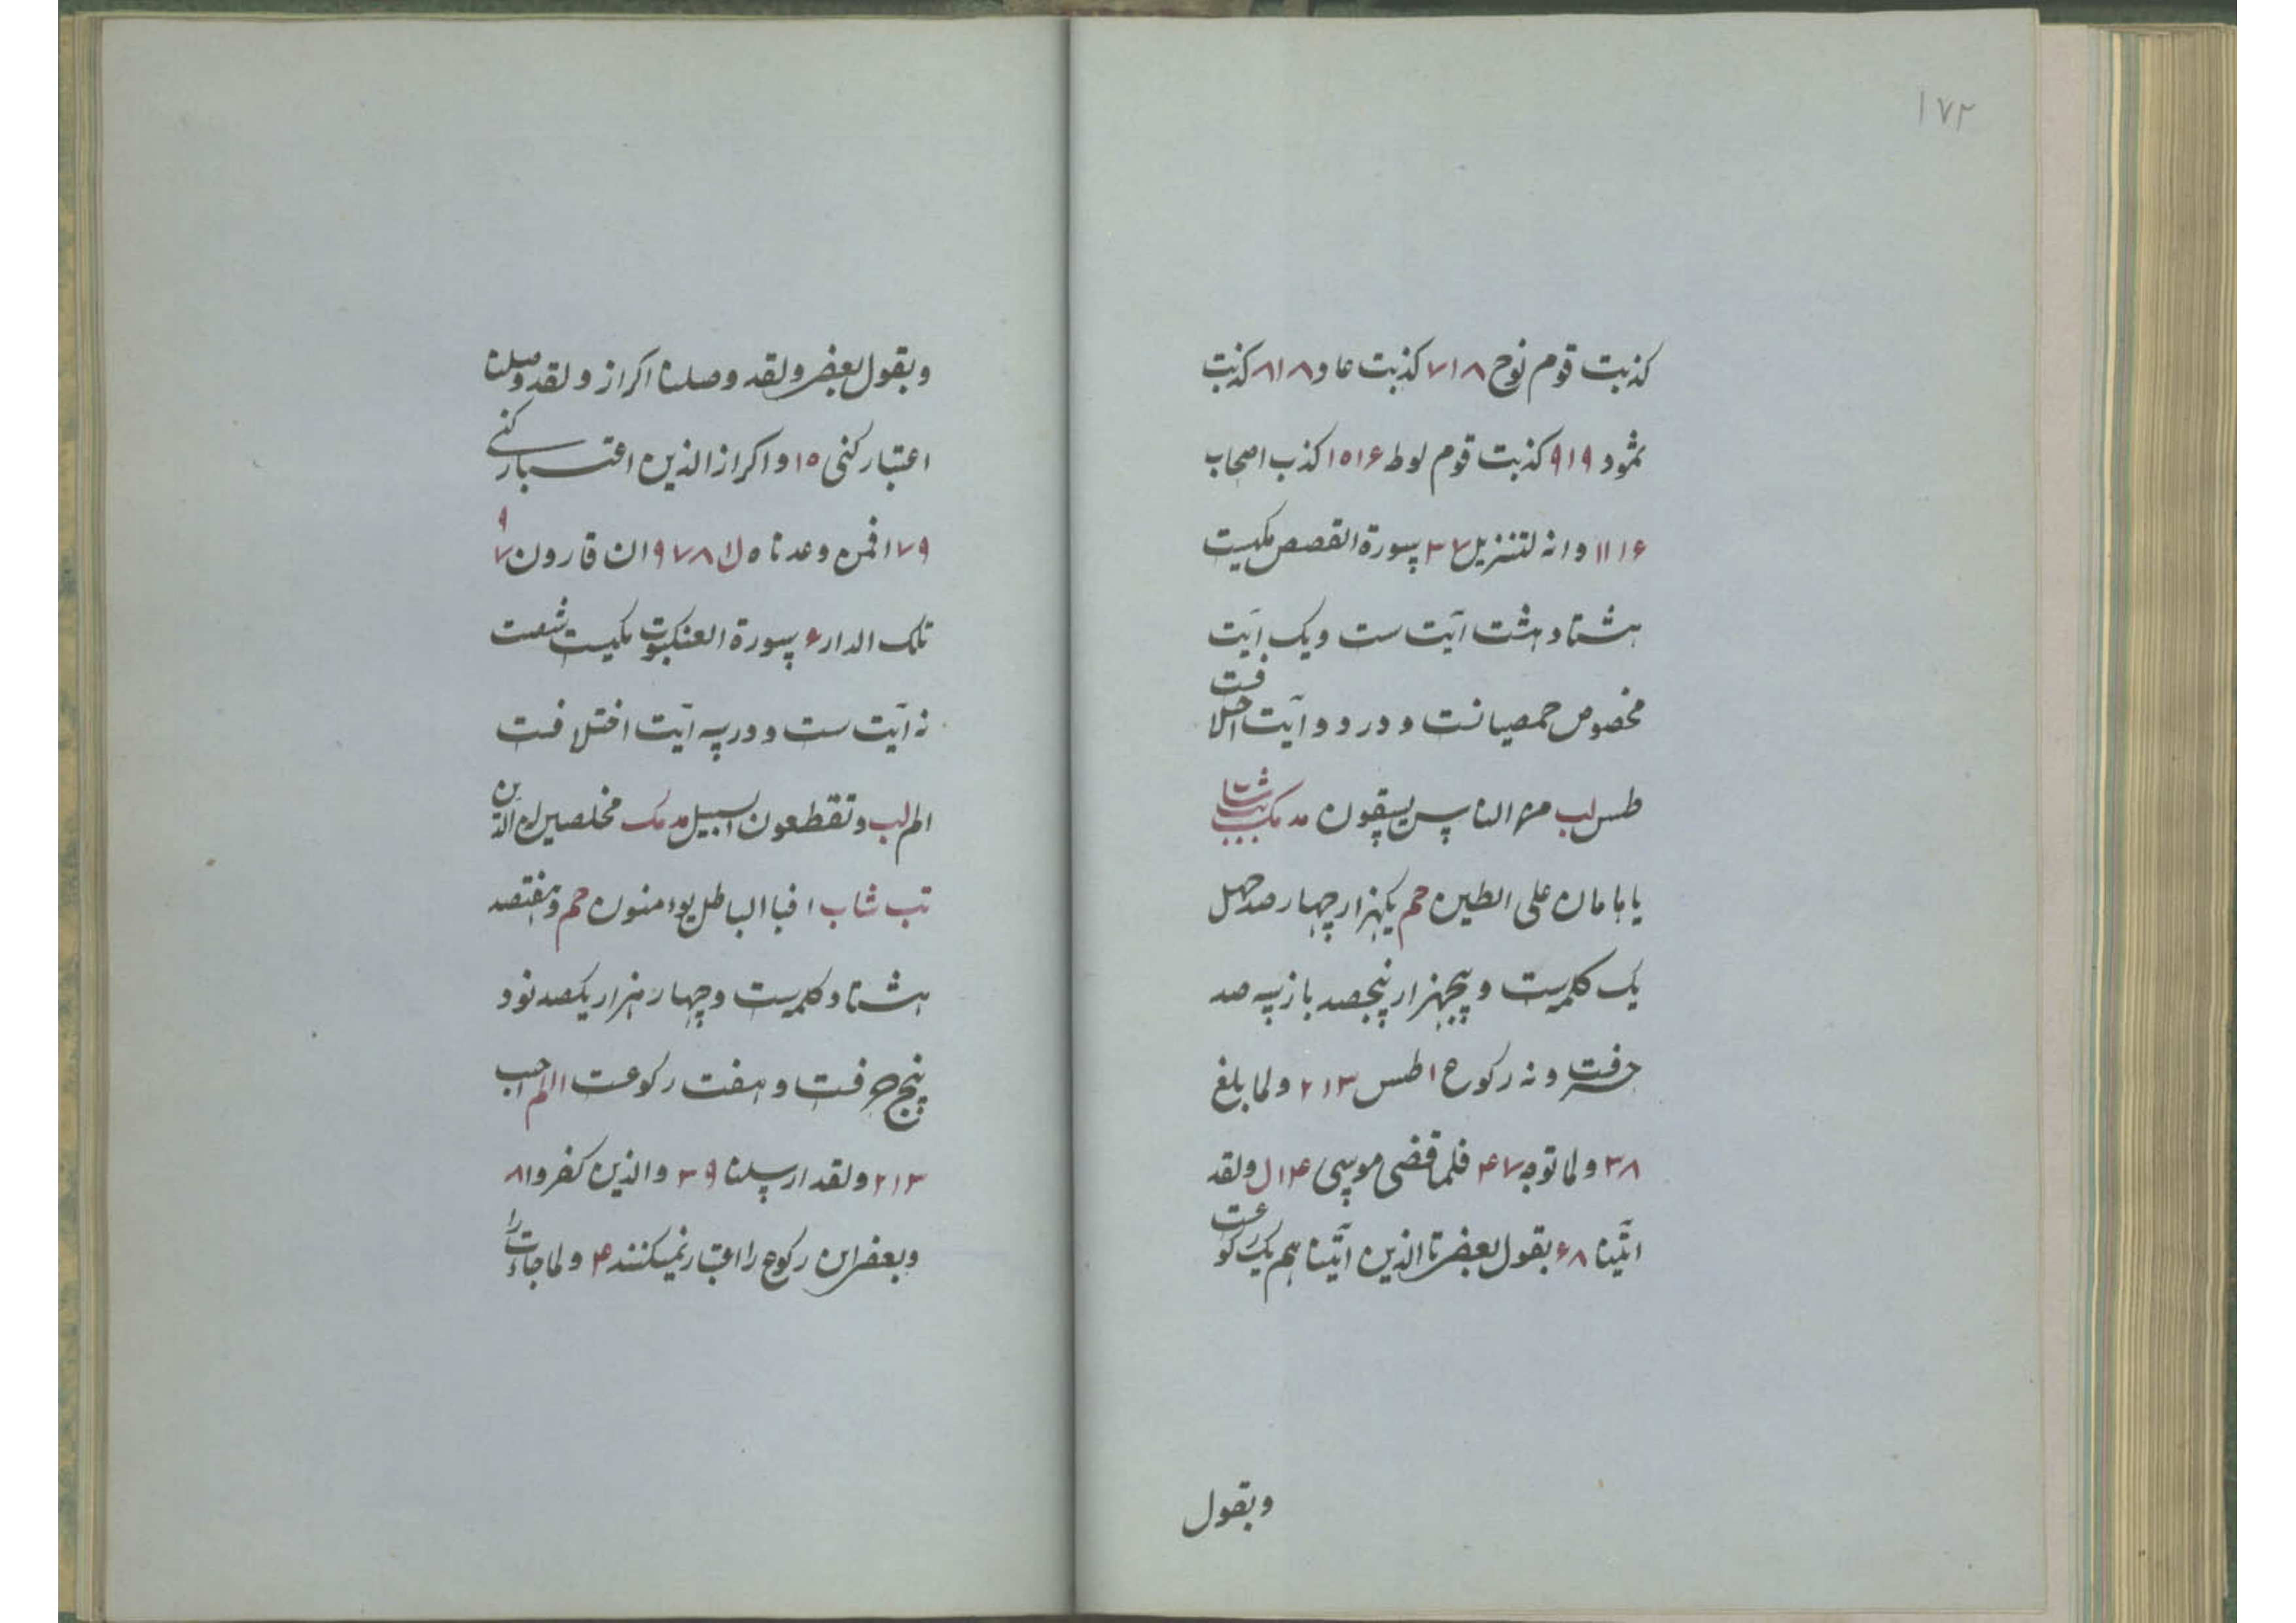 ۱۷۲
کذبت قوم نوح ۷۱۸ کذبت عاد ۸۱۸ کذبت
ثمود ۹۱۹ کذبت قوم لوط ۱۵۱۶ کذب اصحاب
۱۱۱۶ وانه لتنزیل ۳۷ سورة القصص مکیست
هشتاد و هشت آیت ست و یک آیت
مخصوص حمصیانست و در دو آیت اختلافست
طس لب من الناس یسقون مد مک
یاهامان علی الطین حم یکهزار چهار صد چهل
یک کلمه ست و پنجهزار پنجصد بازسه صد
حرفست و نه رکوع ا طس ۲۱۳ ولما بلغ
۳۸ ولما توجه ۴۷ فلما قضی موسی ۱۴ل ولقد
اتینا ۶۸ بقول بعض تا الذین اتینا هم یک رکوعست
وبقول
وبقول بعض ولقد وصلنا اکر از ولقد وصلنا
اعتبار کنی ۱۵ واکر از الذین اعتبار کنی
۱۷۹ افمن وعدناه ل ۹۷۸ ان قارون ۷۹
تلک الدار ۶ سورة العنکبوت مکیست شصت
نه آیت ست و در سه آیت اختلافست
الم لب وتقطعون السبیل مد مک مخلصین له الدین
تب شاب افبا الباطل یوءمنون حم وهفتصد
هشتاد کلمه ست و چهار هزار یکصد نود
پنج حرفست و هفت رکوعست الم احب
۲۱۳ ولقد ارسلنا ۳۹ والذین کفروا ۸
وبعض این رکوع را اعتبار نمیکنند ۴ ولما جاءت را